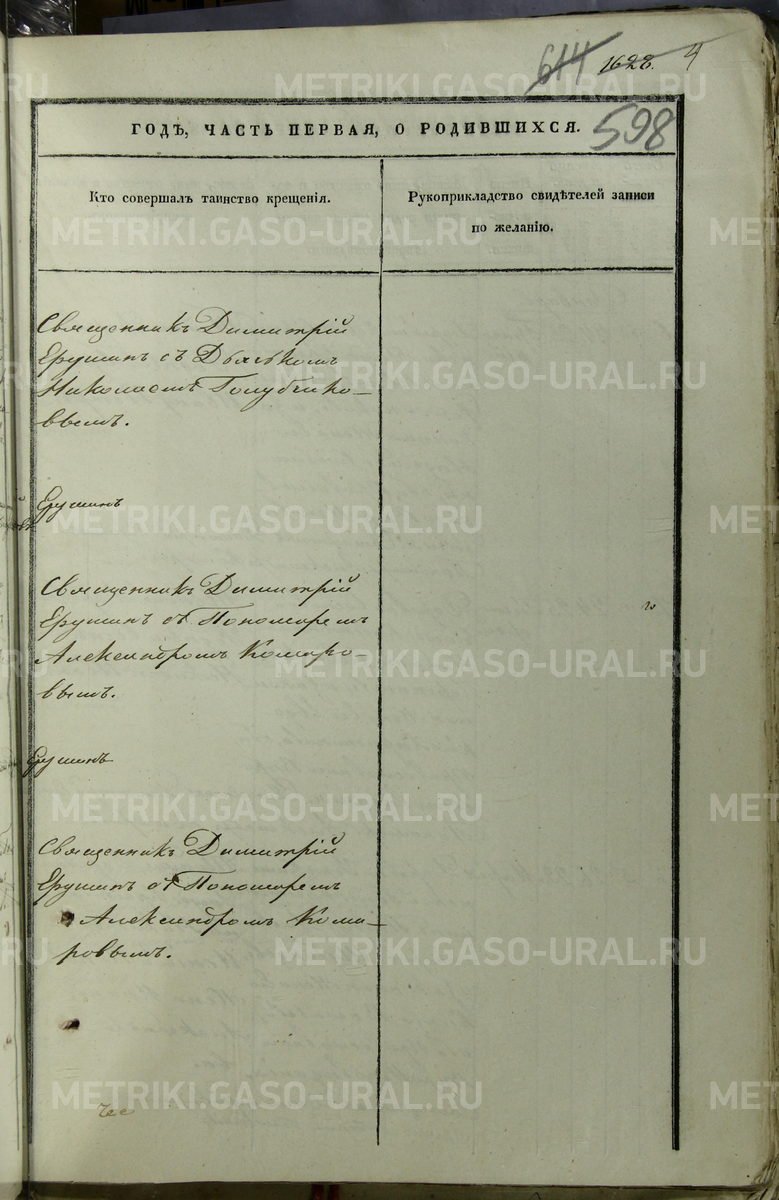 614 1628. 4
598
ГОДЪ, ЧАСТЬ ПЕРВАЯ, О РОДИВШИХСЯ.
Кто совершалъ таинство крещенія.
Рукоприкладство свидѣтелей записи
по желанію.
Священникъ Димитрій
Ерушинъ съ Дьячкомъ
Николаемъ Голубчико-
вымъ.
Ерушинъ
Священникъ Димитрій
Ерушинъ съ Пономаремъ
Александромъ Комаро-
вымъ.
Ерушинъ
Священникъ Димитрій
Ерушинъ съ Пономаремъ
Александромъ Кома-
ровымъ.
METRIKI.GASO-URAL.RU